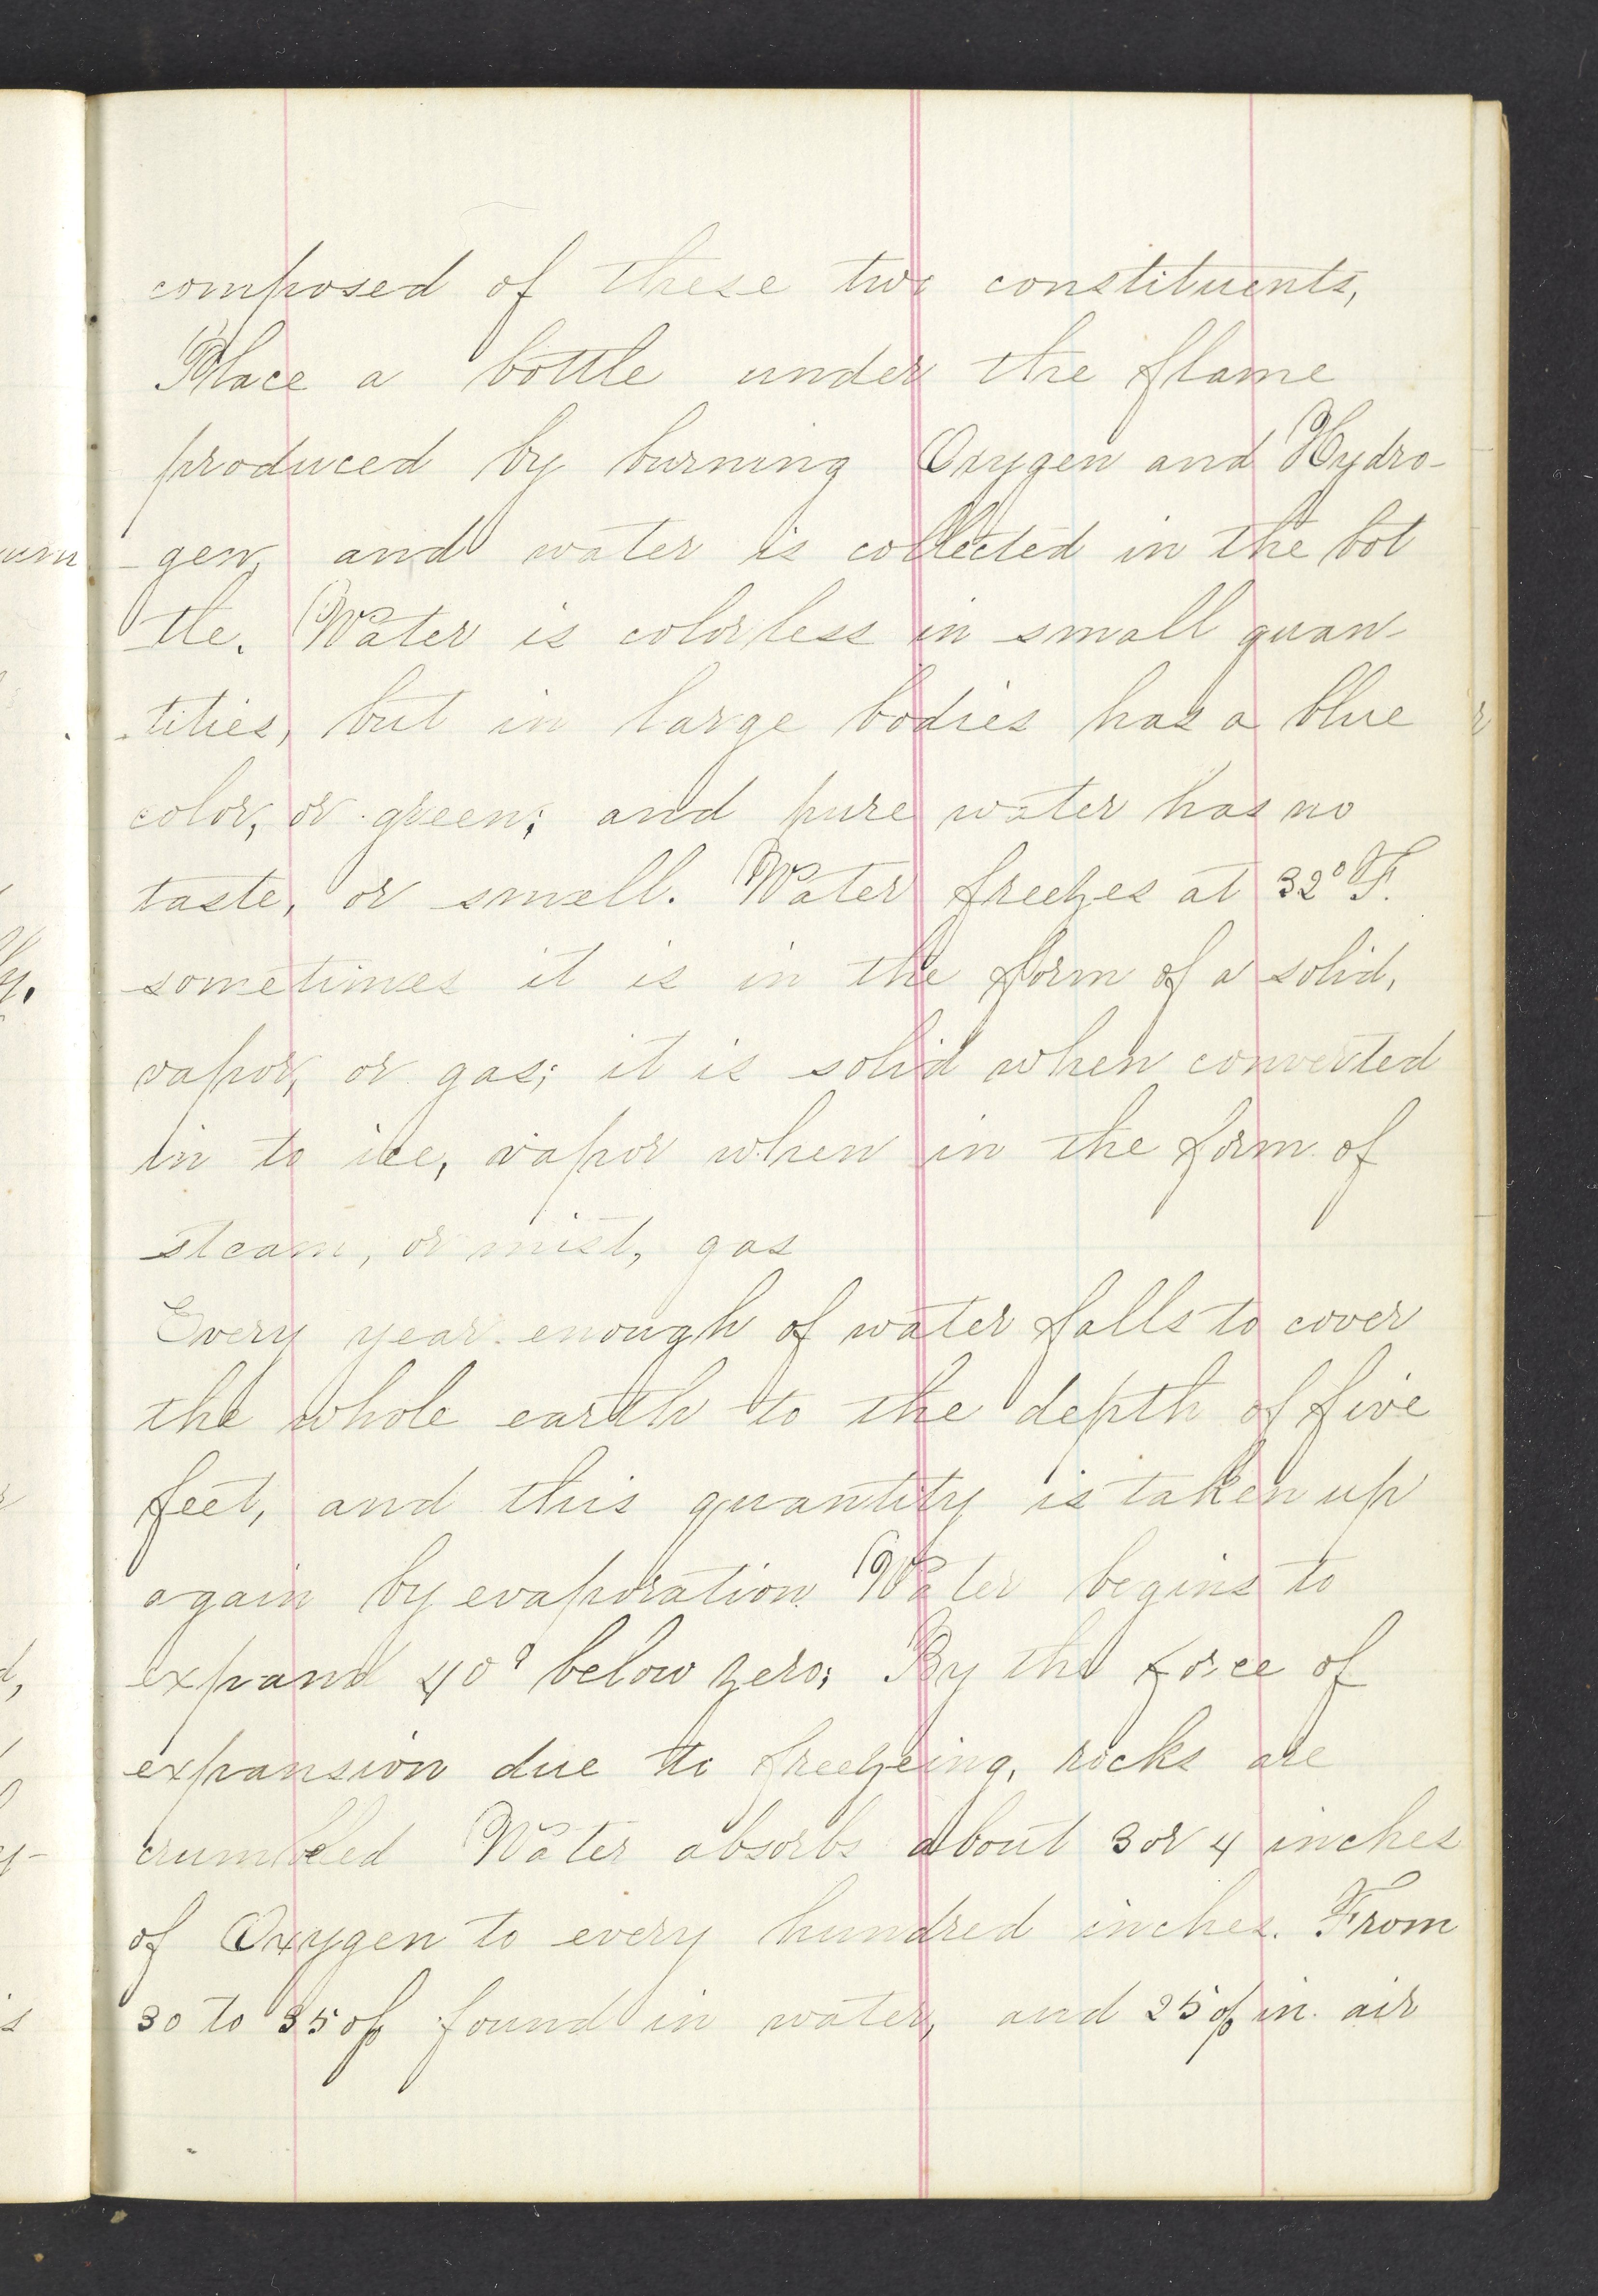 composed of these two constituents,
Place a bottle under the flame
produced by burning Oxygen and Hydro-
-gen, and water is collected in the bot
-tle. Water is colorless in small quan-
-tities, but in large bodies has a blue
color, or green; and pure water has no
taste, or smell. Water freezes at 32° F.
sometimes it is in the form of a solid,
vapor, or gas; it is solid when converted
in to ice, vapor when in the form of
steam, or mist, gas
Every year enough of water falls to cover
the whole earth to the depth of five
feet, and this quantity is taken up
again by evaporation. Water begins to
expand 40° below zero; By the force of
expansion due to freezeing, rocks are
crumbled Water absorbs about 3 or 4 inches
of Oxygen to every hundred inches. From
30 to 35 % found in water, and 25 % in air